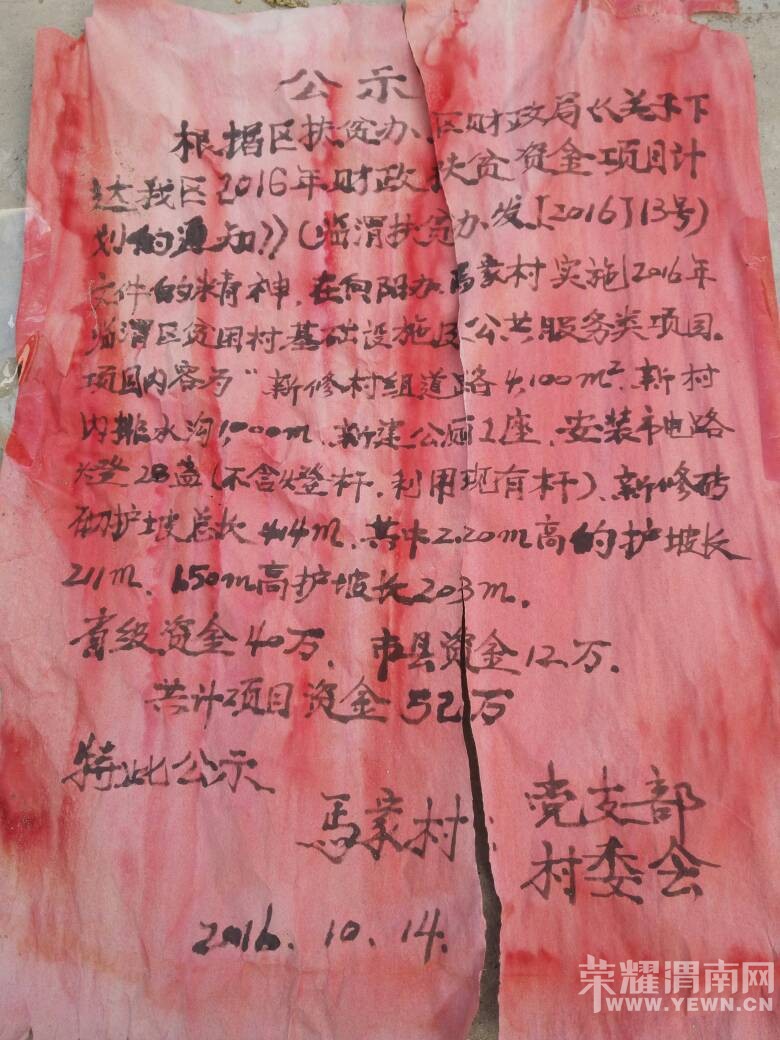 公示
根据区扶贫办、区财政局《关于下
达我区2016年财政扶贫资金项目计
划的通知》》(临渭扶贫办发[2016]13号)
文件的精神,在向阳办马家村实施2016年
临渭区贫困村基础设施及公共服务类项目.
项目内容为"新修村组道路4,100m².新村
内排水沟1,000m、新建公厕1座、安装市电路
灯28盏(不含灯杆,利用现有杆)、新修砖
砌护坡总长414m、其中2.20m高的护坡长
211m、1.50m高护坡长203m.
省级资金40万、市县资金12万.
共计项目资金52万
特此公示
马家村:党支部
村委会
2016.10.14.
荣耀渭南网
WWW.YEWN.CN